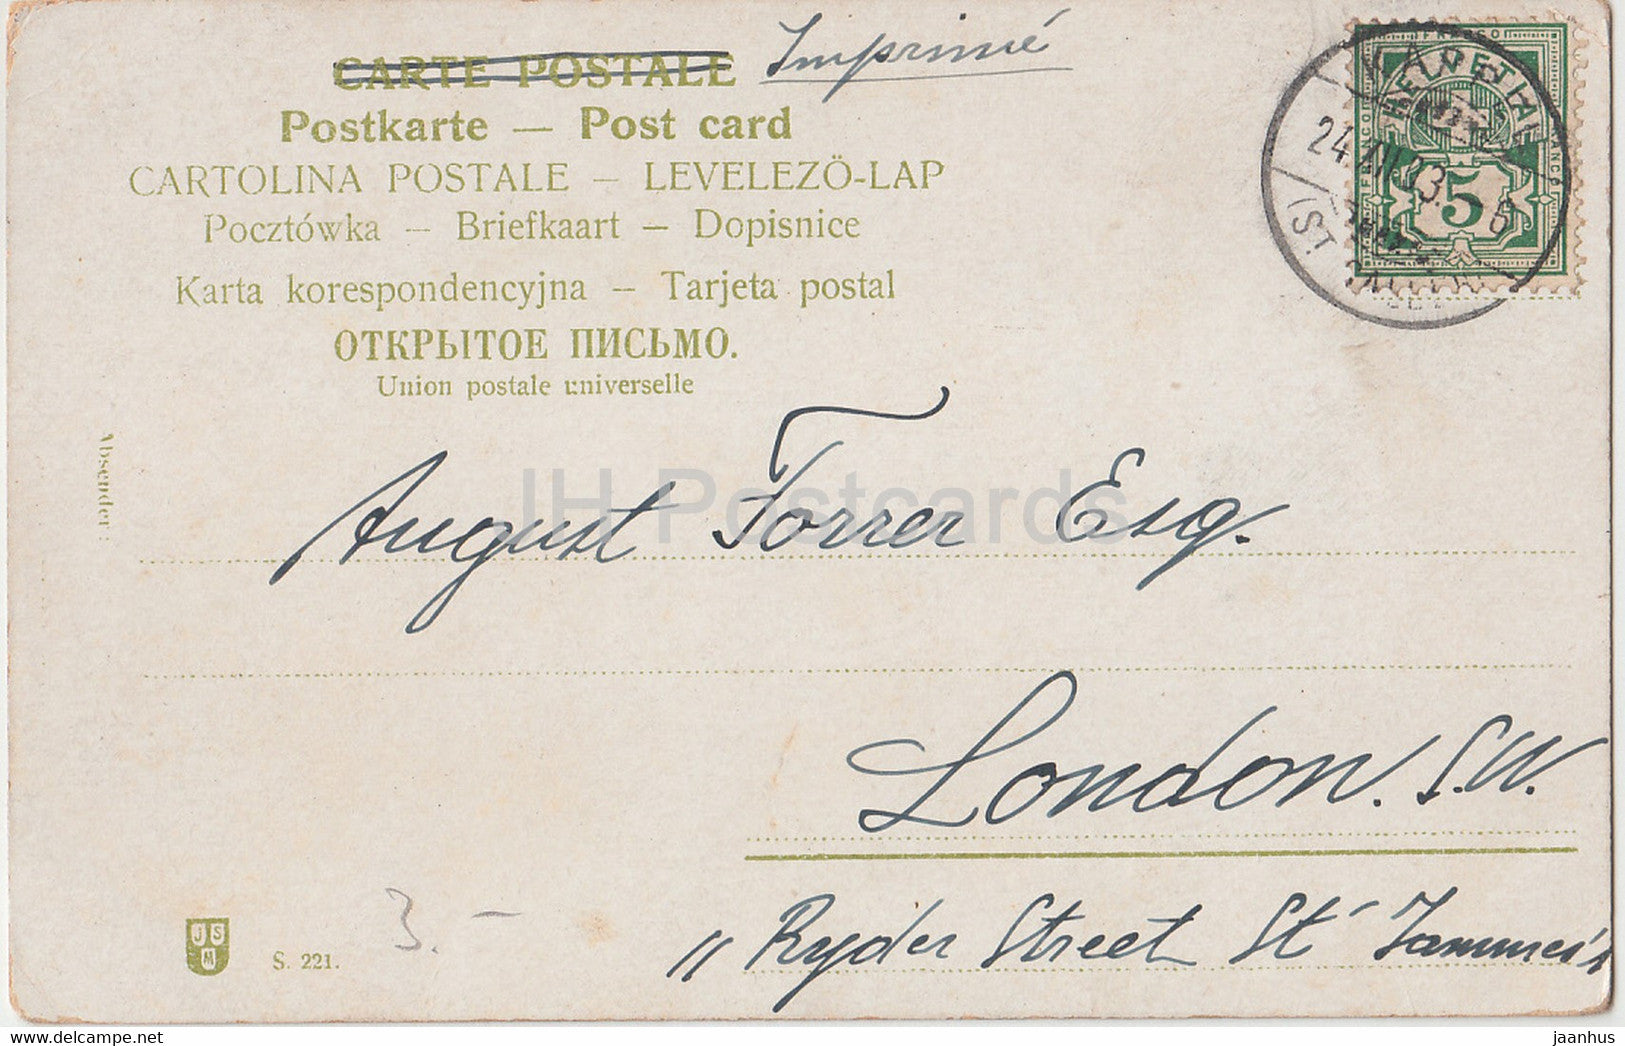 CARTE POSTALE Imprimé
Postkarte — Post card
CARTOLINA POSTALE — LEVELEZÖ-LAP
Pocztówka — Briefkaart — Dopisnice
Karta korespondencyjna — Tarjeta postal
ОТКРЫТОЕ ПИСЬМО.
Union postale universelle
HELVETIA
FRANCO
5
24. XII. 03.
Absender:
JH Postcards
August Forrer Esq.
London. S.W.
11 Ryder Street St
3.–
J S
M
S. 221.
www.delcampe.net
jaanhus